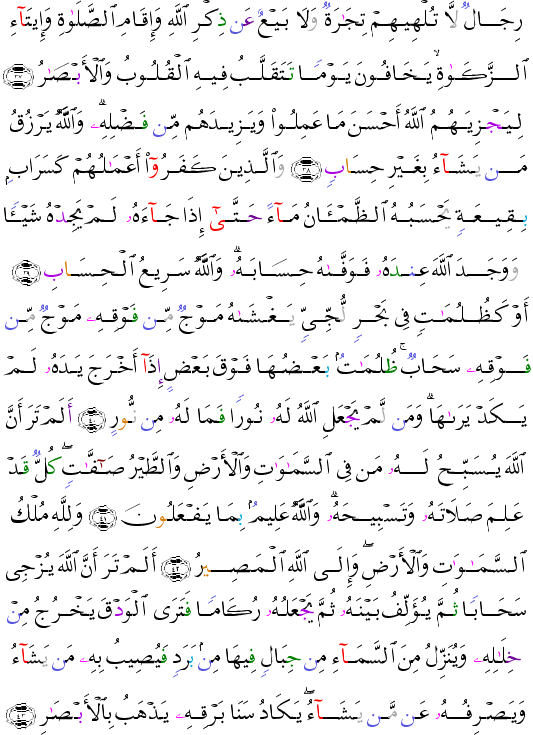 رِجَالٌ لَّا تُلْهِيهِمْ تِجَٰرَةٌ وَلَا بَيْعٌ عَن ذِكْرِ ٱللَّهِ وَإِقَامِ ٱلصَّلَوٰةِ وَإِيتَآءِ
ٱلزَّكَوٰةِ ۙ يَخَافُونَ يَوْمًا تَتَقَلَّبُ فِيهِ ٱلْقُلُوبُ وَٱلْأَبْصَٰرُ ﴿٣٧﴾
لِيَجْزِيَهُمُ ٱللَّهُ أَحْسَنَ مَا عَمِلُوا۟ وَيَزِيدَهُم مِّن فَضْلِهِۦ ۗ وَٱللَّهُ يَرْزُقُ
مَن يَشَآءُ بِغَيْرِ حِسَابٍ ﴿٣٨﴾ وَٱلَّذِينَ كَفَرُوٓا۟ أَعْمَٰلُهُمْ كَسَرَابٍۭ
بِقِيعَةٍ يَحْسَبُهُ ٱلظَّمْـَٔانُ مَآءً حَتَّىٰٓ إِذَا جَآءَهُۥ لَمْ يَجِدْهُ شَيْـًٔا
وَوَجَدَ ٱللَّهَ عِندَهُۥ فَوَفَّىٰهُ حِسَابَهُۥ ۗ وَٱللَّهُ سَرِيعُ ٱلْحِسَابِ ﴿٣٩﴾
أَوْ كَظُلُمَٰتٍ فِى بَحْرٍ لُّجِّىٍّ يَغْشَىٰهُ مَوْجٌ مِّن فَوْقِهِۦ مَوْجٌ مِّن
فَوْقِهِۦ سَحَابٌ ۚ ظُلُمَٰتٌۢ بَعْضُهَا فَوْقَ بَعْضٍ إِذَآ أَخْرَجَ يَدَهُۥ لَمْ
يَكَدْ يَرَىٰهَا ۗ وَمَن لَّمْ يَجْعَلِ ٱللَّهُ لَهُۥ نُورًا فَمَا لَهُۥ مِن نُّورٍ ﴿٤٠﴾ أَلَمْ تَرَ أَنَّ
ٱللَّهَ يُسَبِّحُ لَهُۥ مَن فِى ٱلسَّمَٰوَٰتِ وَٱلْأَرْضِ وَٱلطَّيْرُ صَٰٓفَّٰتٍ ۖ كُلٌّ قَدْ
عَلِمَ صَلَاتَهُۥ وَتَسْبِيحَهُۥ ۗ وَٱللَّهُ عَلِيمٌۢ بِمَا يَفْعَلُونَ ﴿٤١﴾ وَلِلَّهِ مُلْكُ
ٱلسَّمَٰوَٰتِ وَٱلْأَرْضِ ۖ وَإِلَى ٱللَّهِ ٱلْمَصِيرُ ﴿٤٢﴾ أَلَمْ تَرَ أَنَّ ٱللَّهَ يُزْجِى
سَحَابًا ثُمَّ يُؤَلِّفُ بَيْنَهُۥ ثُمَّ يَجْعَلُهُۥ رُكَامًا فَتَرَى ٱلْوَدْقَ يَخْرُجُ مِنْ
خِلَٰلِهِۦ وَيُنَزِّلُ مِنَ ٱلسَّمَآءِ مِن جِبَالٍ فِيهَا مِنۢ بَرَدٍ فَيُصِيبُ بِهِۦ مَن يَشَآءُ
وَيَصْرِفُهُۥ عَن مَّن يَشَآءُ ۖ يَكَادُ سَنَا بَرْقِهِۦ يَذْهَبُ بِٱلْأَبْصَٰرِ ﴿٤٣﴾